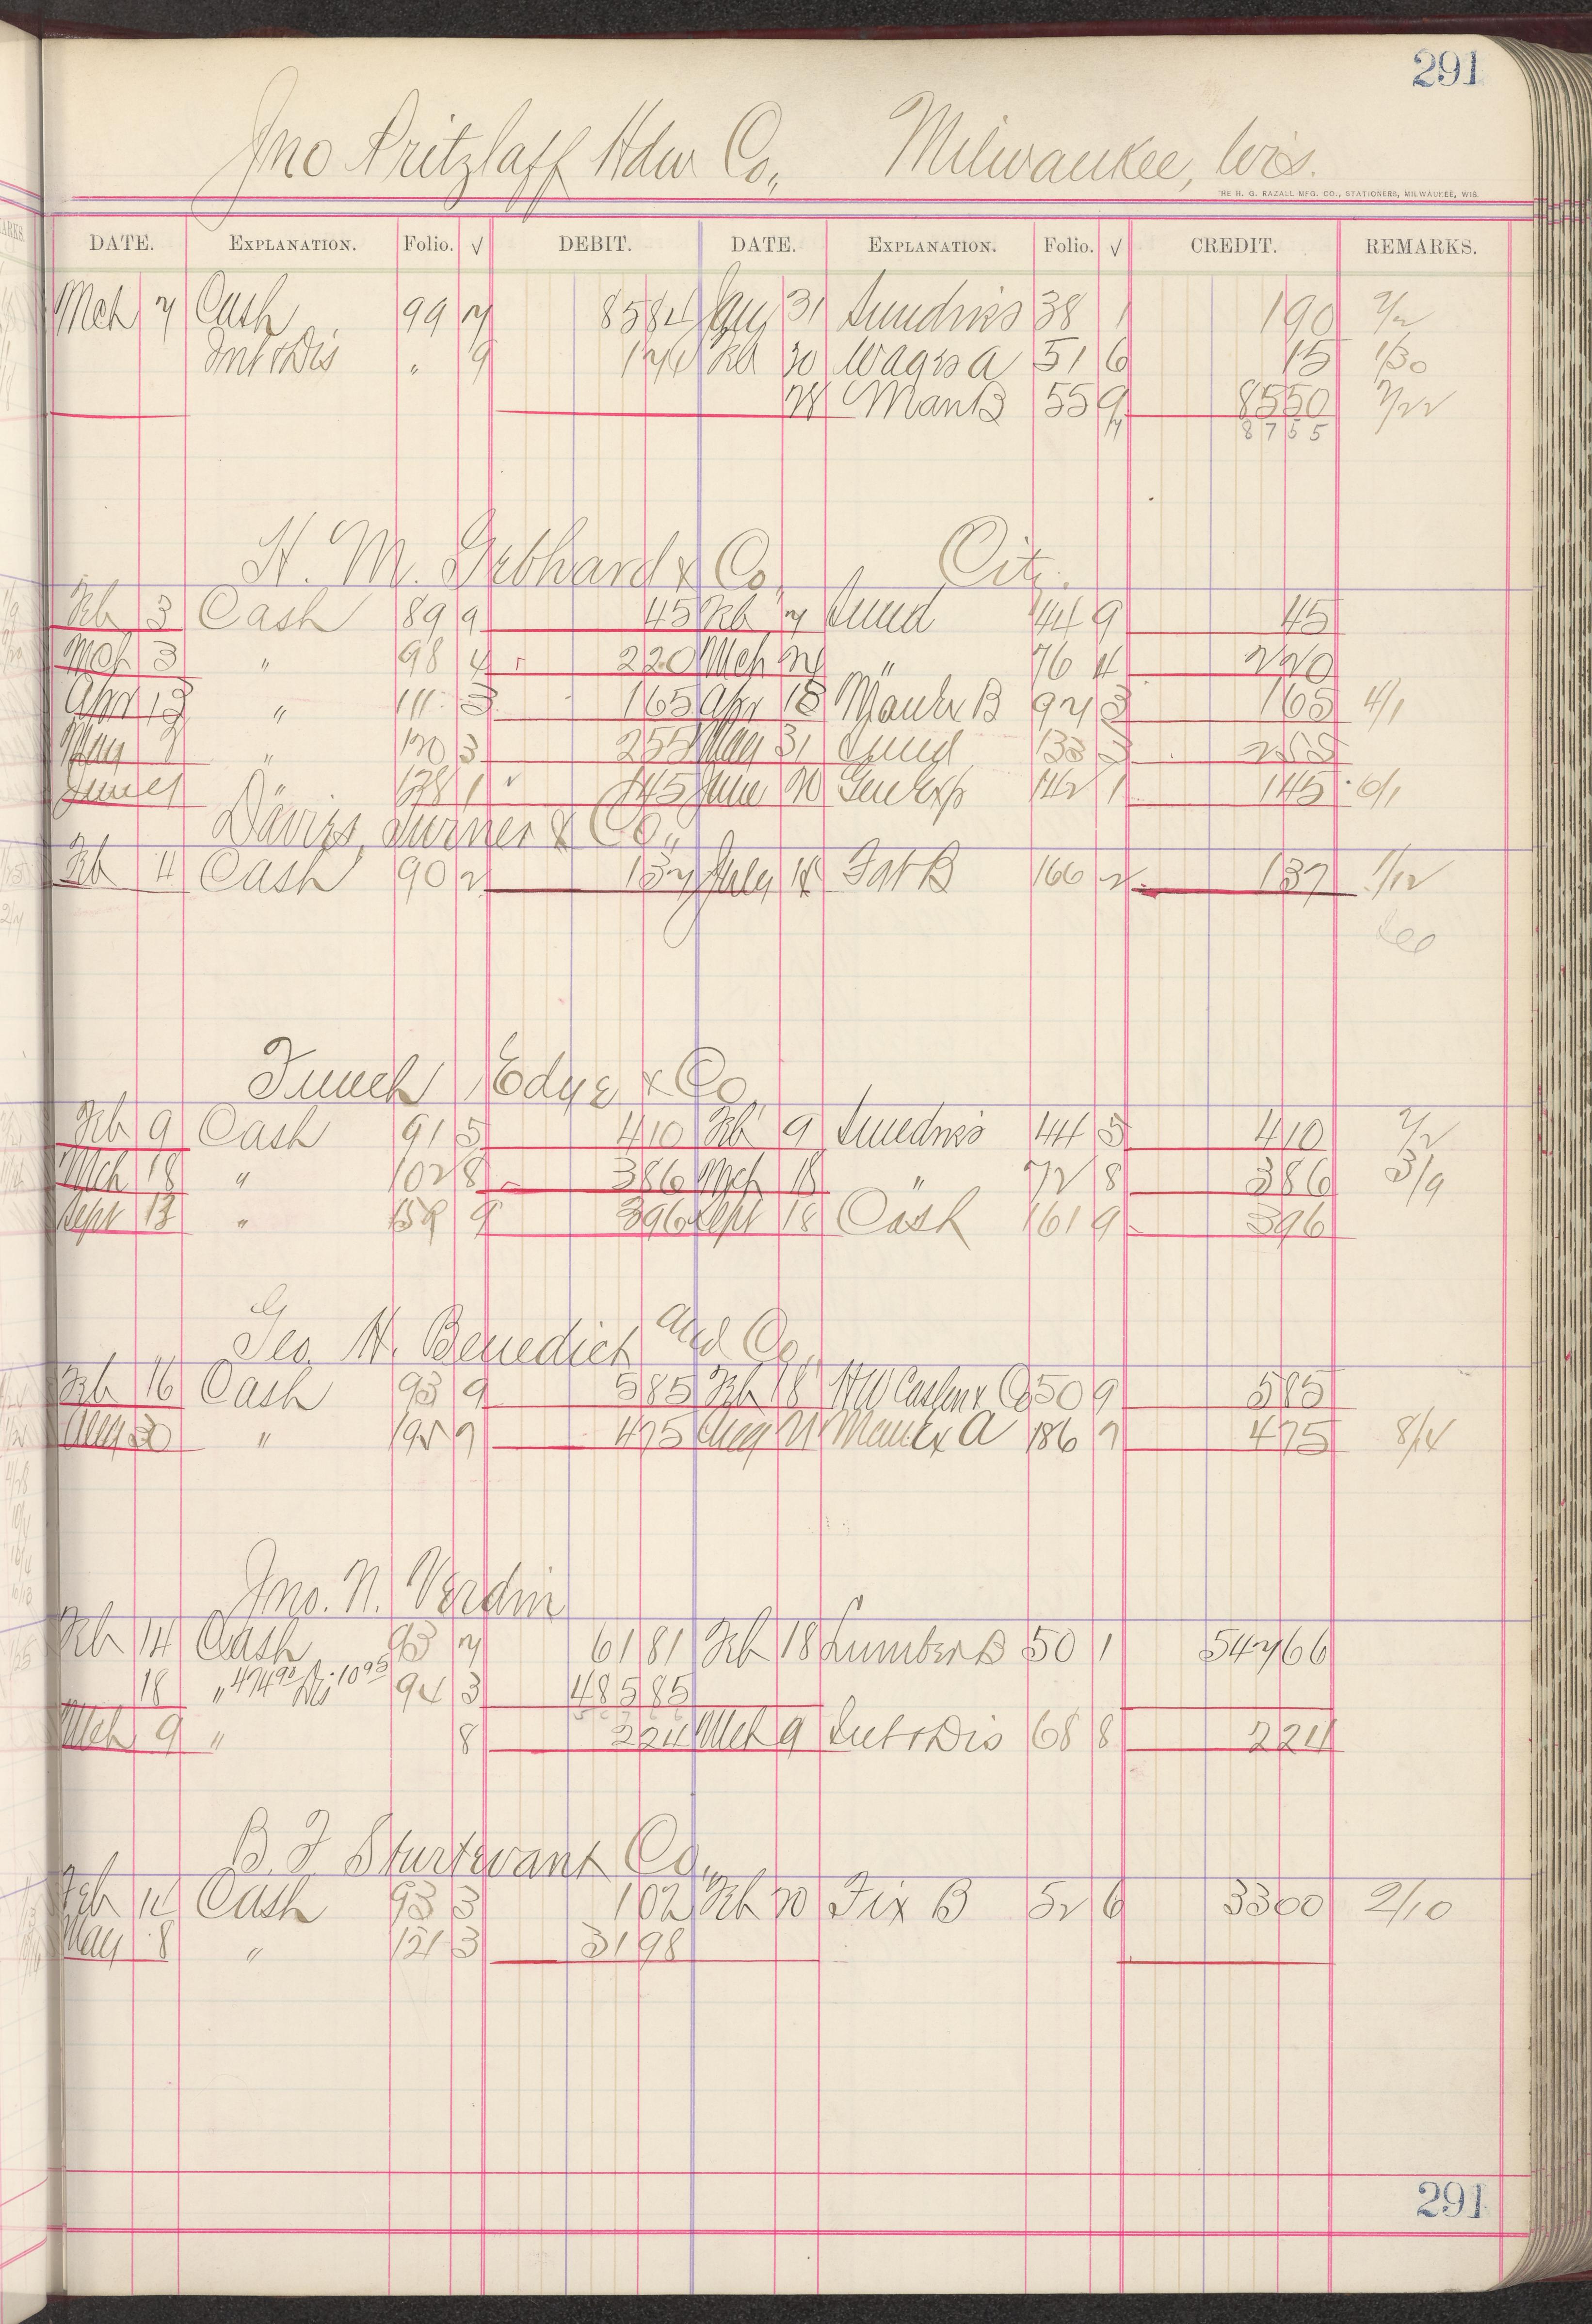 291
Jno Pritzlaff Hdw Co., Milwaukee, Wis.
THE H. G. RAZALL MFG. CO., STATIONERS, MILWAUKEE, WIS.
DATE. EXPLANATION. Folio. √ DEBIT. DATE. EXPLANATION. Folio. √ CREDIT. REMARKS.
Mch 7 Cash 99 7 8584 31 Sundries 38 1 190 2/2
Int & Dis " 9 171 Feb 20 Wages a 51 6 15 1/30
28 Man B 55 9 8550 2/22
8755
H. M. Gebhard & Co. City
Feb 3 Cash 89 9 45 Feb 7 Sund 44 9 45
Mch 3 " 98 4 220 Mch 76 4 220
Apr 13 " 111 3 165 Apr 18 B 97 3 165 4/1
May " 120 3 255 May 31 Sund 133 3 255
June 128 1 145 June 20 Gen Exp 142 1 145
Davies, Turner & Co.,
Feb 11 Cash 90 2 137 July 14 B 166 2 137 1/12
Funch, Edye & Co.
Feb 9 Cash 91 5 410 Feb 9 Sundries 44 5 410 2/2
Mch 18 " 102 8 386 Mch 18 " 72 8 386 3/9
Sept 13 " 159 9 396 Sept 18 Cash 161 9 396
Geo. H. Benedict and Co.
Feb 16 Cash 93 9 585 Feb 18 50 9 585
Aug " 7 475 Aug 21 a 186 7 475 8/14
Jno. N. Verdin
Feb 14 Cash 93 7 6181 Feb 18 Lumber B 50 1 54766
18 " 474 90 Dis 10 95 94 3 48585
Mch 9 " 8 224 Mch 9 Int & Dis 68 8 224
B. F. Sturtevant Co.,
Feb 14 Cash 93 3 102 Feb 20 Fix B 52 6 3300 2/10
May 8 " 121 3 3198
291